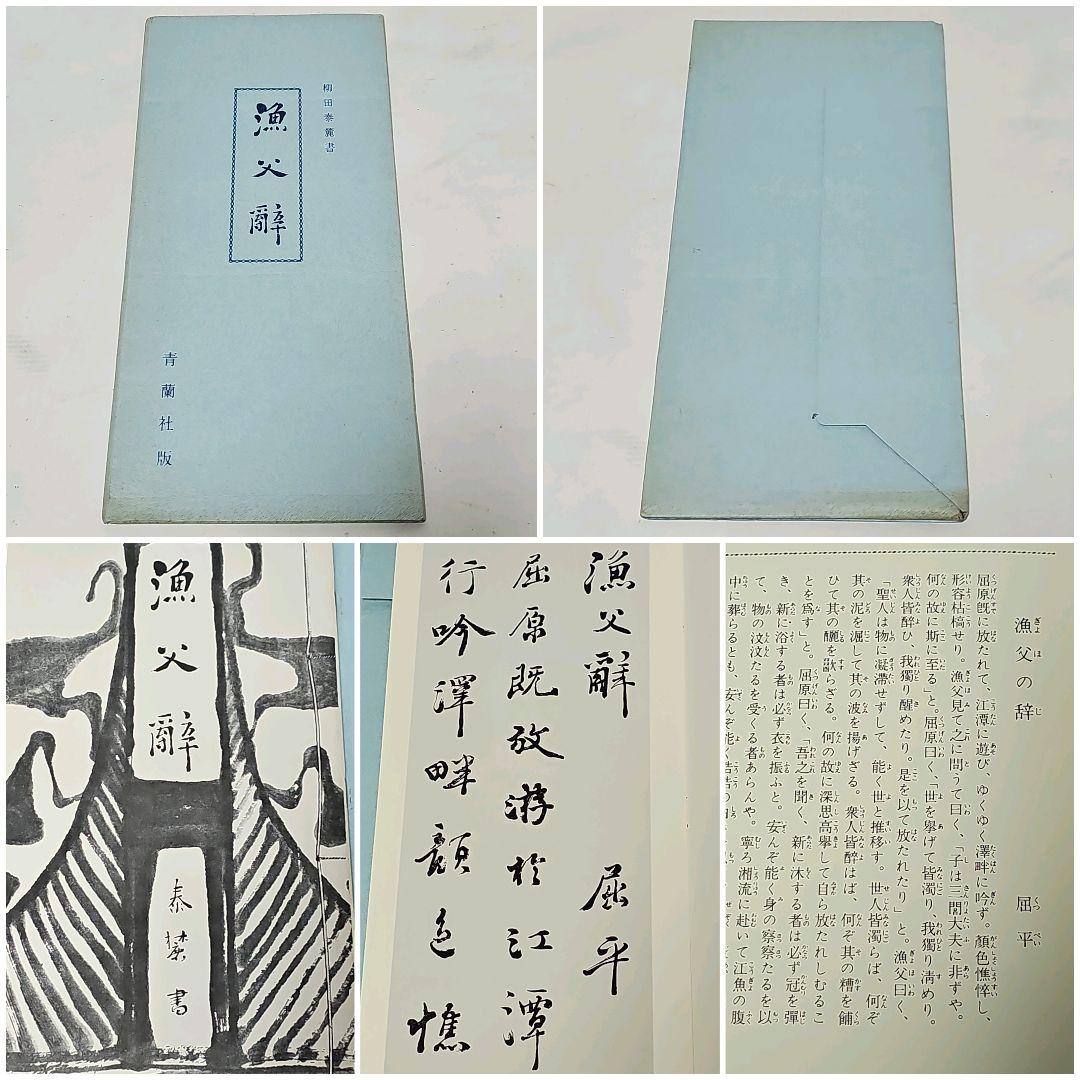 柳田泰麓書
漁父辭
青蘭社版
漁父辭
泰麓書
漁父辭 屈平
屈原既放游於江潭
行吟澤畔顔色憔
漁父の辞 屈平
屈原旣に放たれて、江潭に遊び、ゆくゆく澤畔に吟ず。顏色憔悴し、
形容枯槁せり。漁父見て之に問うて曰く、「子は三閭大夫に非ずや。
何の故に斯に至る」と。屈原曰く、「世を擧げて皆濁り、我獨り淸めり。
衆人皆醉ひ、我獨り醒めたり。是を以て放たれたり」と。漁父曰く、
「聖人は物に凝滯せずして、能く世と推移す。世人皆濁らば、何ぞ
其の泥を淈して其の波を揚げざる。衆人皆醉はば、何ぞ其の糟を餔
ひて其の釃を歠らざる。何の故に深思高擧して自ら放たれしむるこ
とを爲す」と。屈原曰く、「吾之を聞く、新に沐する者は必ず冠を彈
き、新に浴する者は必ず衣を振ふと。安んぞ能く身の察察たるを以
て、物の汶汶たるを受くる者あらんや。寧ろ湘流に赴いて江魚の腹
中に葬らるとも、安んぞ能く